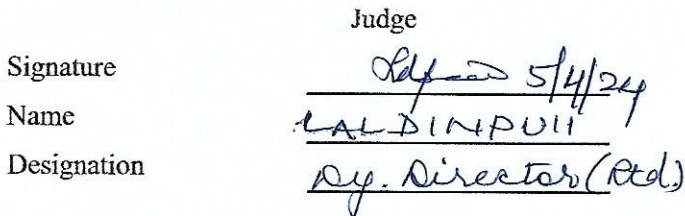 Judge
Signature 5/4/24
Name LALDINPUII
Designation Dy. Director (Rtd.)